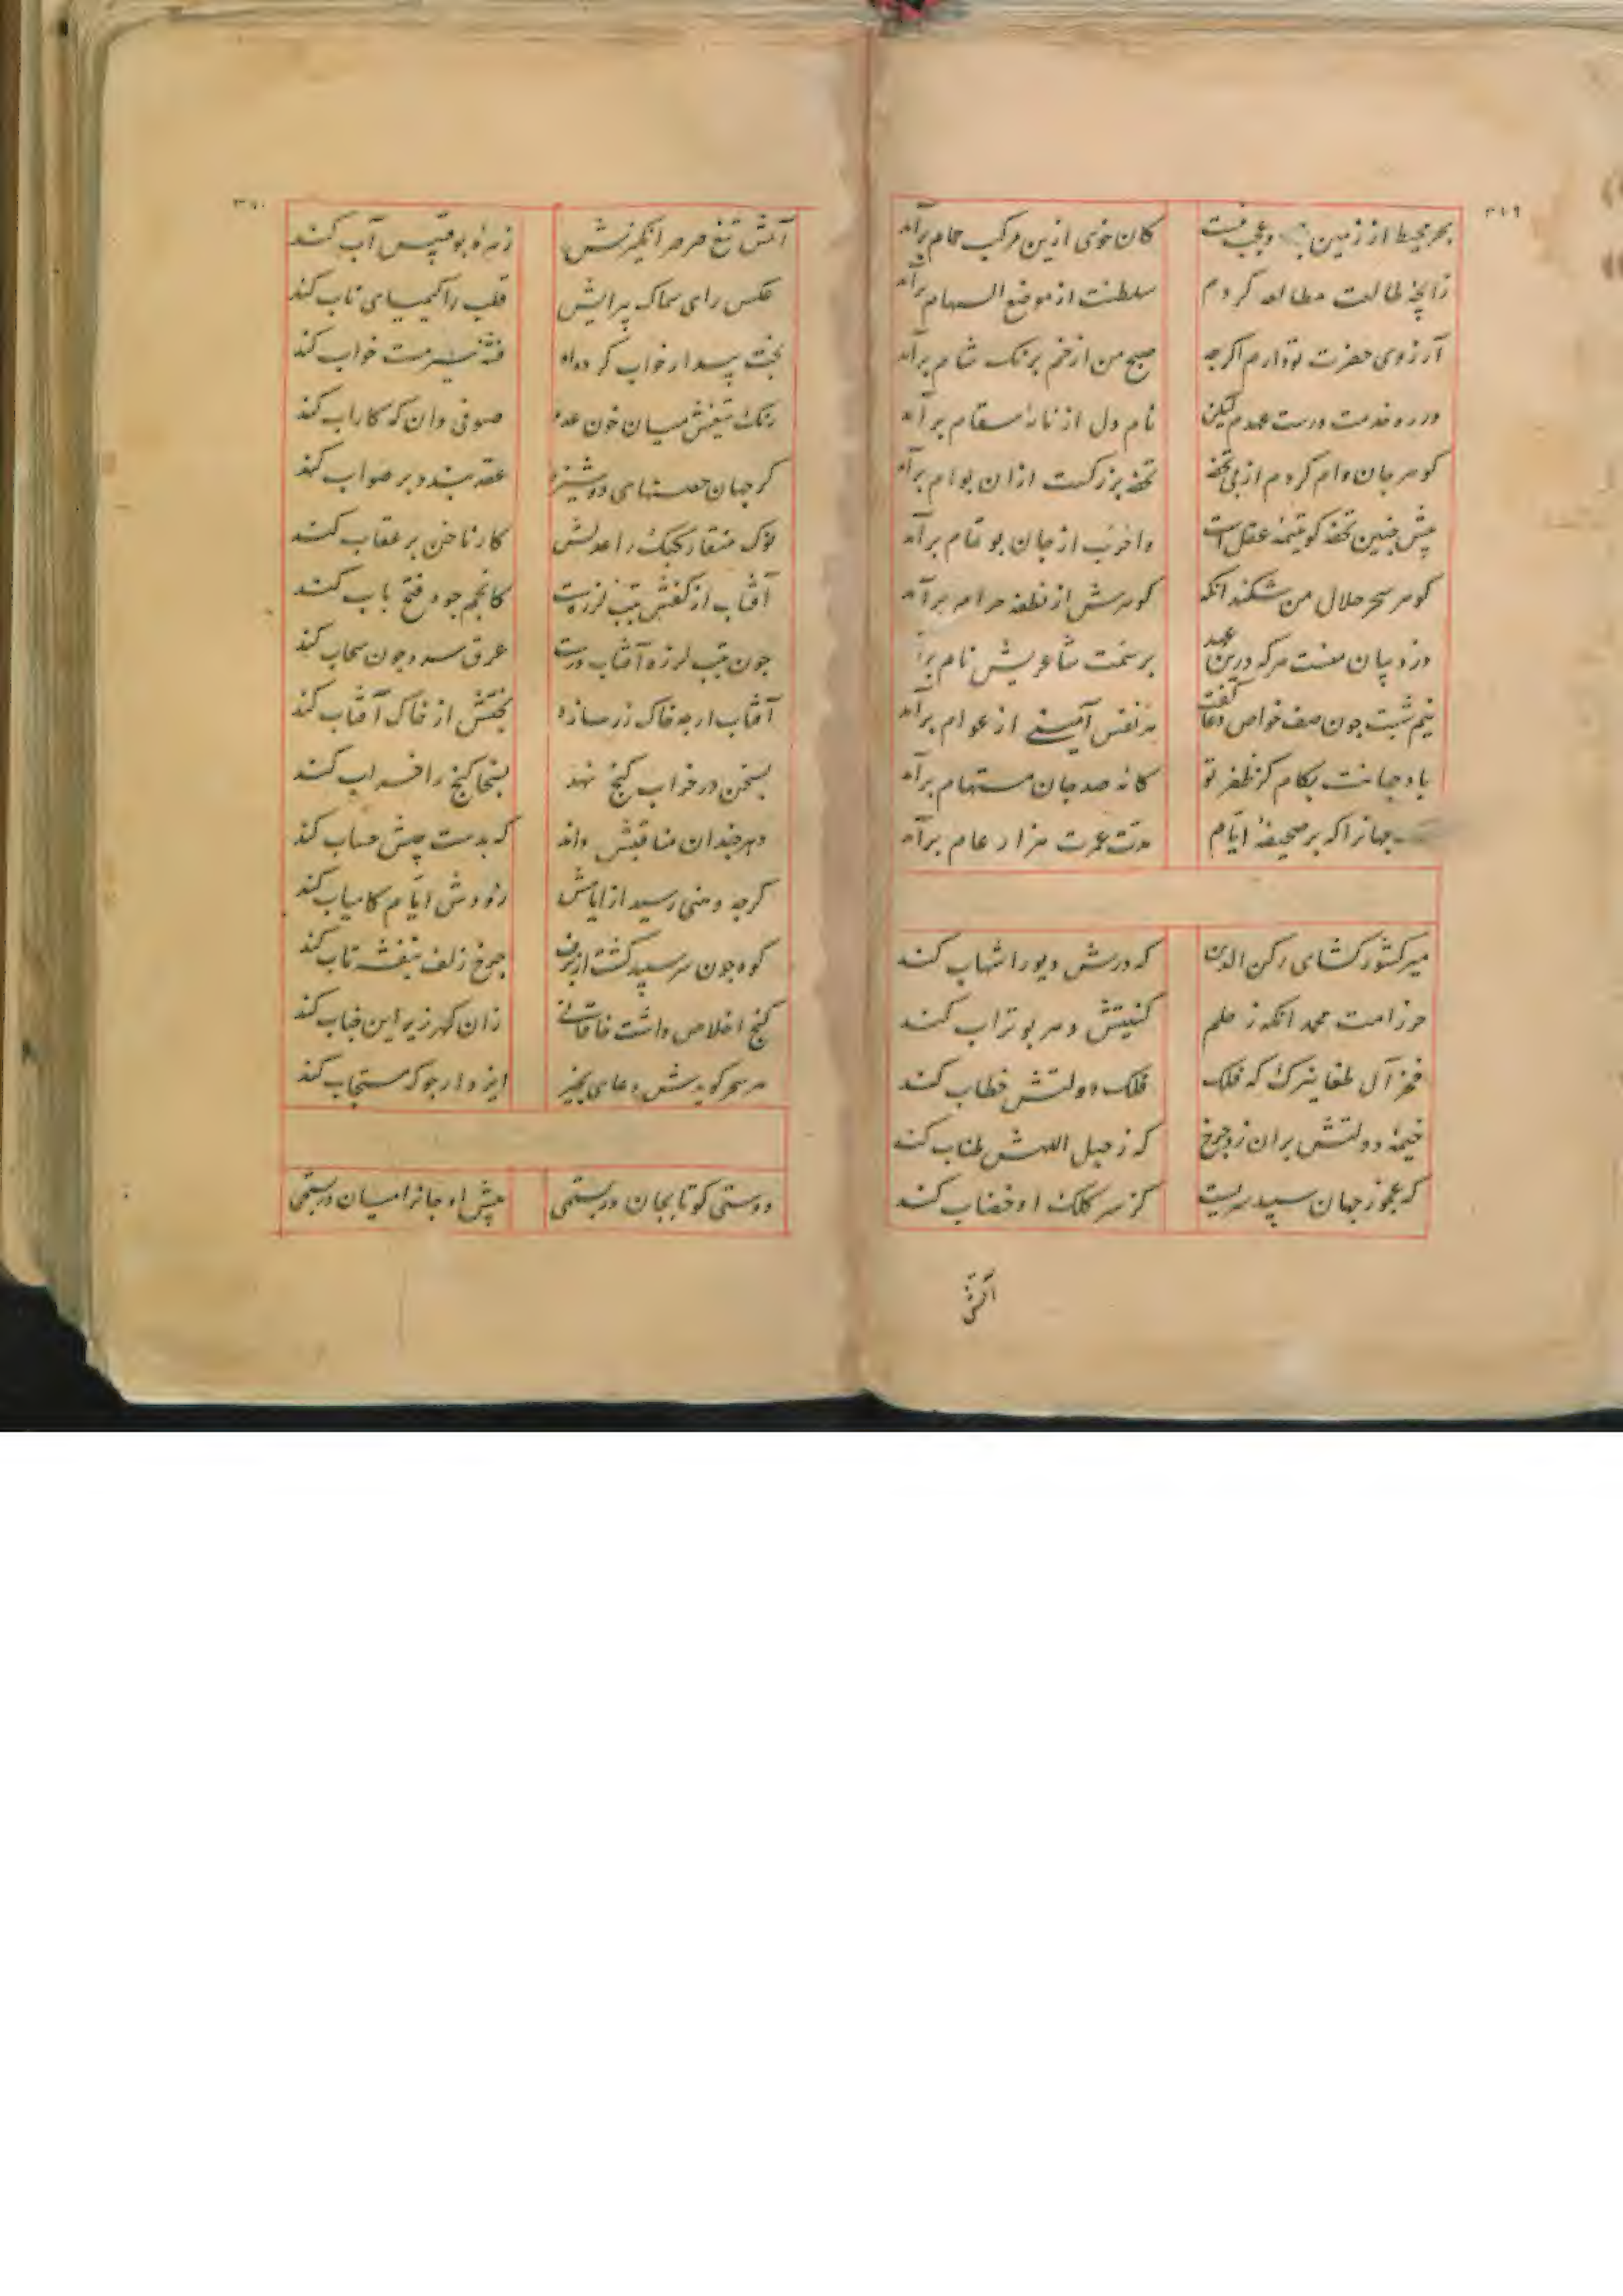 ۳۱۹
بحر محیط از زمین و عجب نیست کان خوی ازین مرکب حمام برآمد
زایچه طالعت مطالعه کردم سلطنت از موضع السهام برآمد
آرزوی حضرت تو دارم اکرچه صبح من از غم برنک شام برآمد
در ره خدمت درست عهدم لیکن نام دل از نادرستقام برآمد
کوهر جان وام کردم از پی تحفه تحفه بزرکست ازان بوام برآمد
پیش چنین تحفه کو تمیمه عقل است واخزب از جان بو تمام برآمد
کوهر سحر حلال من شکند انکه کوهرش از نطفه حرام برآمد
دزد بیان منست هرکه درین عهد بر سمت شاعریش نام برآ
نیم شبت چون صف خواص دعا کفت هر نفس آمینی از عوام برآمد
باد جهانت بکام کز ظفر تو کامه صد جان مستهام برآمد
جهانرا که بر صحیفه ایام مدت عمرت هزار عام برآمد
میر کشورکشای رکن الدین که درش دیو را شهاب کند
حرز امت محمد انکه ز حلم کنیتش دهر بوتراب کند
فخر آل طغایزک که فلک فلک دولتش خطاب کند
خیمه دولتش بران زد چرخ که ز حبل اللهش طناب کند
که عجوز جهان سپید سریست کز سر کلک او خضاب کند
آتش
۳۲۰
آتش تیغ صرصر انکیزش زهره بوقبیس آب کند
عکس رای سماک پیرایش قلب را کیمیای ناب کند
بخت بیدار خواب کرده او فتنه نیمست خواب کند
رنک تیغش میان خون عدو صوفی دان که کار آب کند
کر جهان حصنهای دوشیزه عقد بندد بر صواب کند
نوک منقار کبک را عدلش کار ناخن بر عقاب کند
آفتاب از کفش بتب لرزست کانجم جود فتح باب کند
چون بتب لرزه آفتاب درست عرق سرد چون سحاب کند
آفتاب ارچه خاک زر سازد بختش از خاک آفتاب کند
بسخن در خراب کنج نهد بسخا کنج را خراب کند
دهر چندان مناقبش داند که بدست چپش حساب کند
کرچه وهنی رسید از ایامش زود ش ایام کامیاب کند
کوه چون سر سپید کشت از برف چرخ زلف بنفشه تاب کند
کنج اخلاص داشت خاقانی زان کهر زیر این خباب کند
هر سحر کویدش دعای بخیر ایزد ارجو که مستجاب کند
دوستی کو تا بجان دربستمی پیش او جانرا میان دربستمی